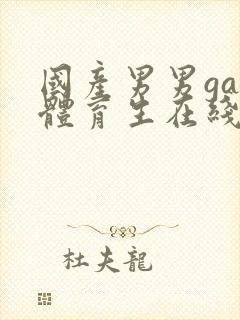 國產男男ga
體育生在綫
杜夫龍